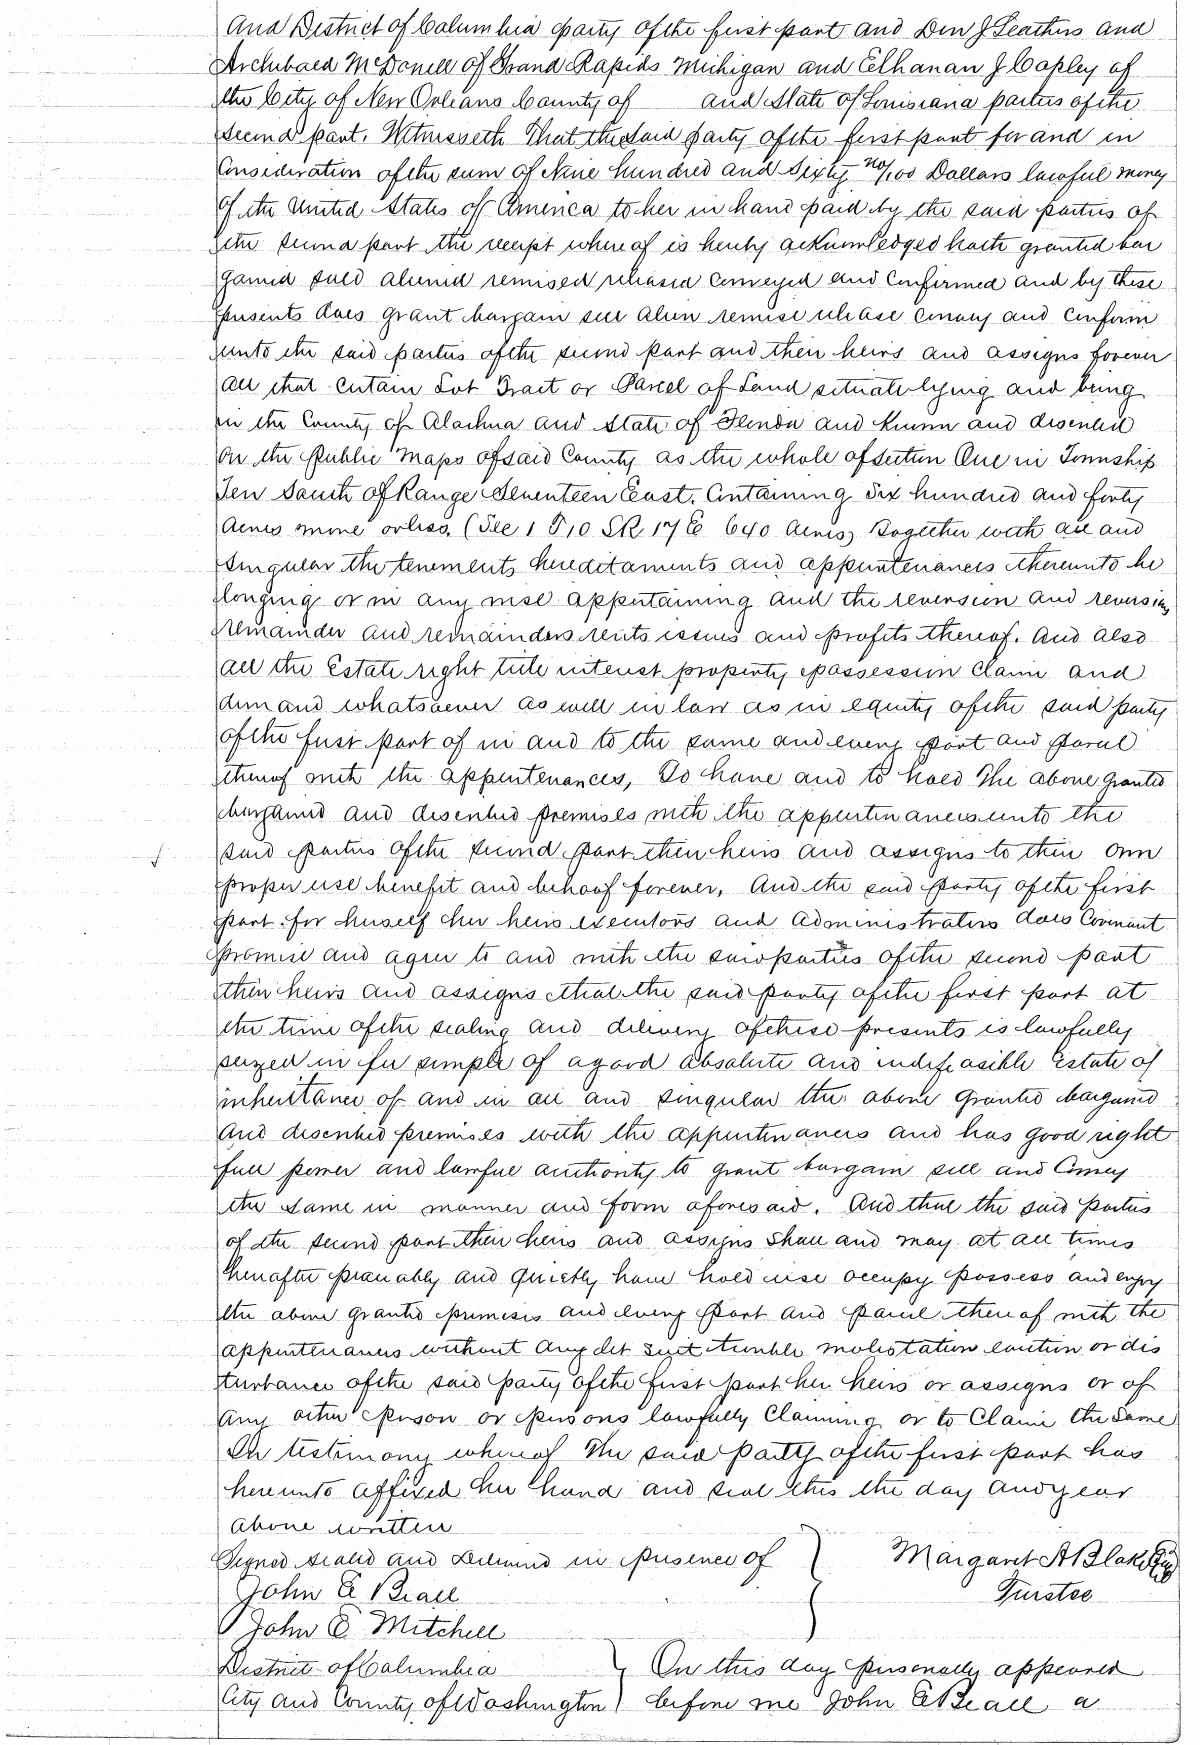 and District of Columbia party of the first part and Don J Leathers and
Archibald McDonell of Grand Rapids Michigan and Elhanan J Copley of
the City of New Orleans County of and State of Louisiana parties of the
second part. Witnesseth That the said party of the first part for and in
Consideration of the sum of Nine hundred and Sixty no/100 Dollars lawful money
of the United States of America to her in hand paid by the said parties of
the second part the receipt whereof is hereby acknowledged hath granted bar
gained sold aliened remised released conveyed and confirmed and by these
presents does grant bargain sell alien remise release convey and confirm
unto the said parties of the second part and their heirs and assigns forever
all that certain Lot Tract or Parcel of Land situate lying and being
in the County of Alachua and State of Florida and known and described
on the Public Maps of said County as the whole of section One in Township
Ten South of Range Seventeen East. Containing Six hundred and forty
Acres more or less. (Sec 1 T10 SR 17 E 640 Acres) Together with all and
singular the tenements hereditaments and appurtenances thereunto be
longing or in any wise appertaining and the reversion and reversions
remainder and remainders rents issues and profits thereof. And also
all the Estate right title interest property possession Claim and
demand whatsoever as well in law as in equity of the said party
of the first part of in and to the same and every part and parcel
thereof with the appurtenances, To have and to hold The above granted
bargained and described premises with the appurtenances unto the
said parties of the second part their heirs and assigns to their own
proper use benefit and behoof forever. And the said party of the first
part for herself her heirs executors and Administrators does Covenant
promise and agree to and with the said parties of the second part
their heirs and assigns that the said party of the first part at
the time of the sealing and delivery of these presents is lawfully
seized in fee simple of a good absolute and indefeasible Estate of
inheritance of and in all and singular the above granted bargained
and described premises with the appurtenances and has good right
full power and lawful authority to grant bargain sell and Convey
the same in manner and form aforesaid. And that the said parties
of the second part their heirs and assigns Shall and may at all times
hereafter peaceably and quietly have hold use occupy possess and enjoy
the above granted premises and every part and parcel thereof with the
appurtenances without any let suit trouble molestation eviction or dis
turbance of the said party of the first part her heirs or assigns or of
any other person or persons lawfully Claiming or to Claim the Same
In testimony whereof The said party of the first part has
hereunto affixed her hand and seal this the day and year
above written
Signed sealed and Delivered in presence of
Margaret A Blake
John E Beall
Trustee
John E Mitchell
District of Columbia
On this day personally appeared
City and County of Washington
before me John E Beall a